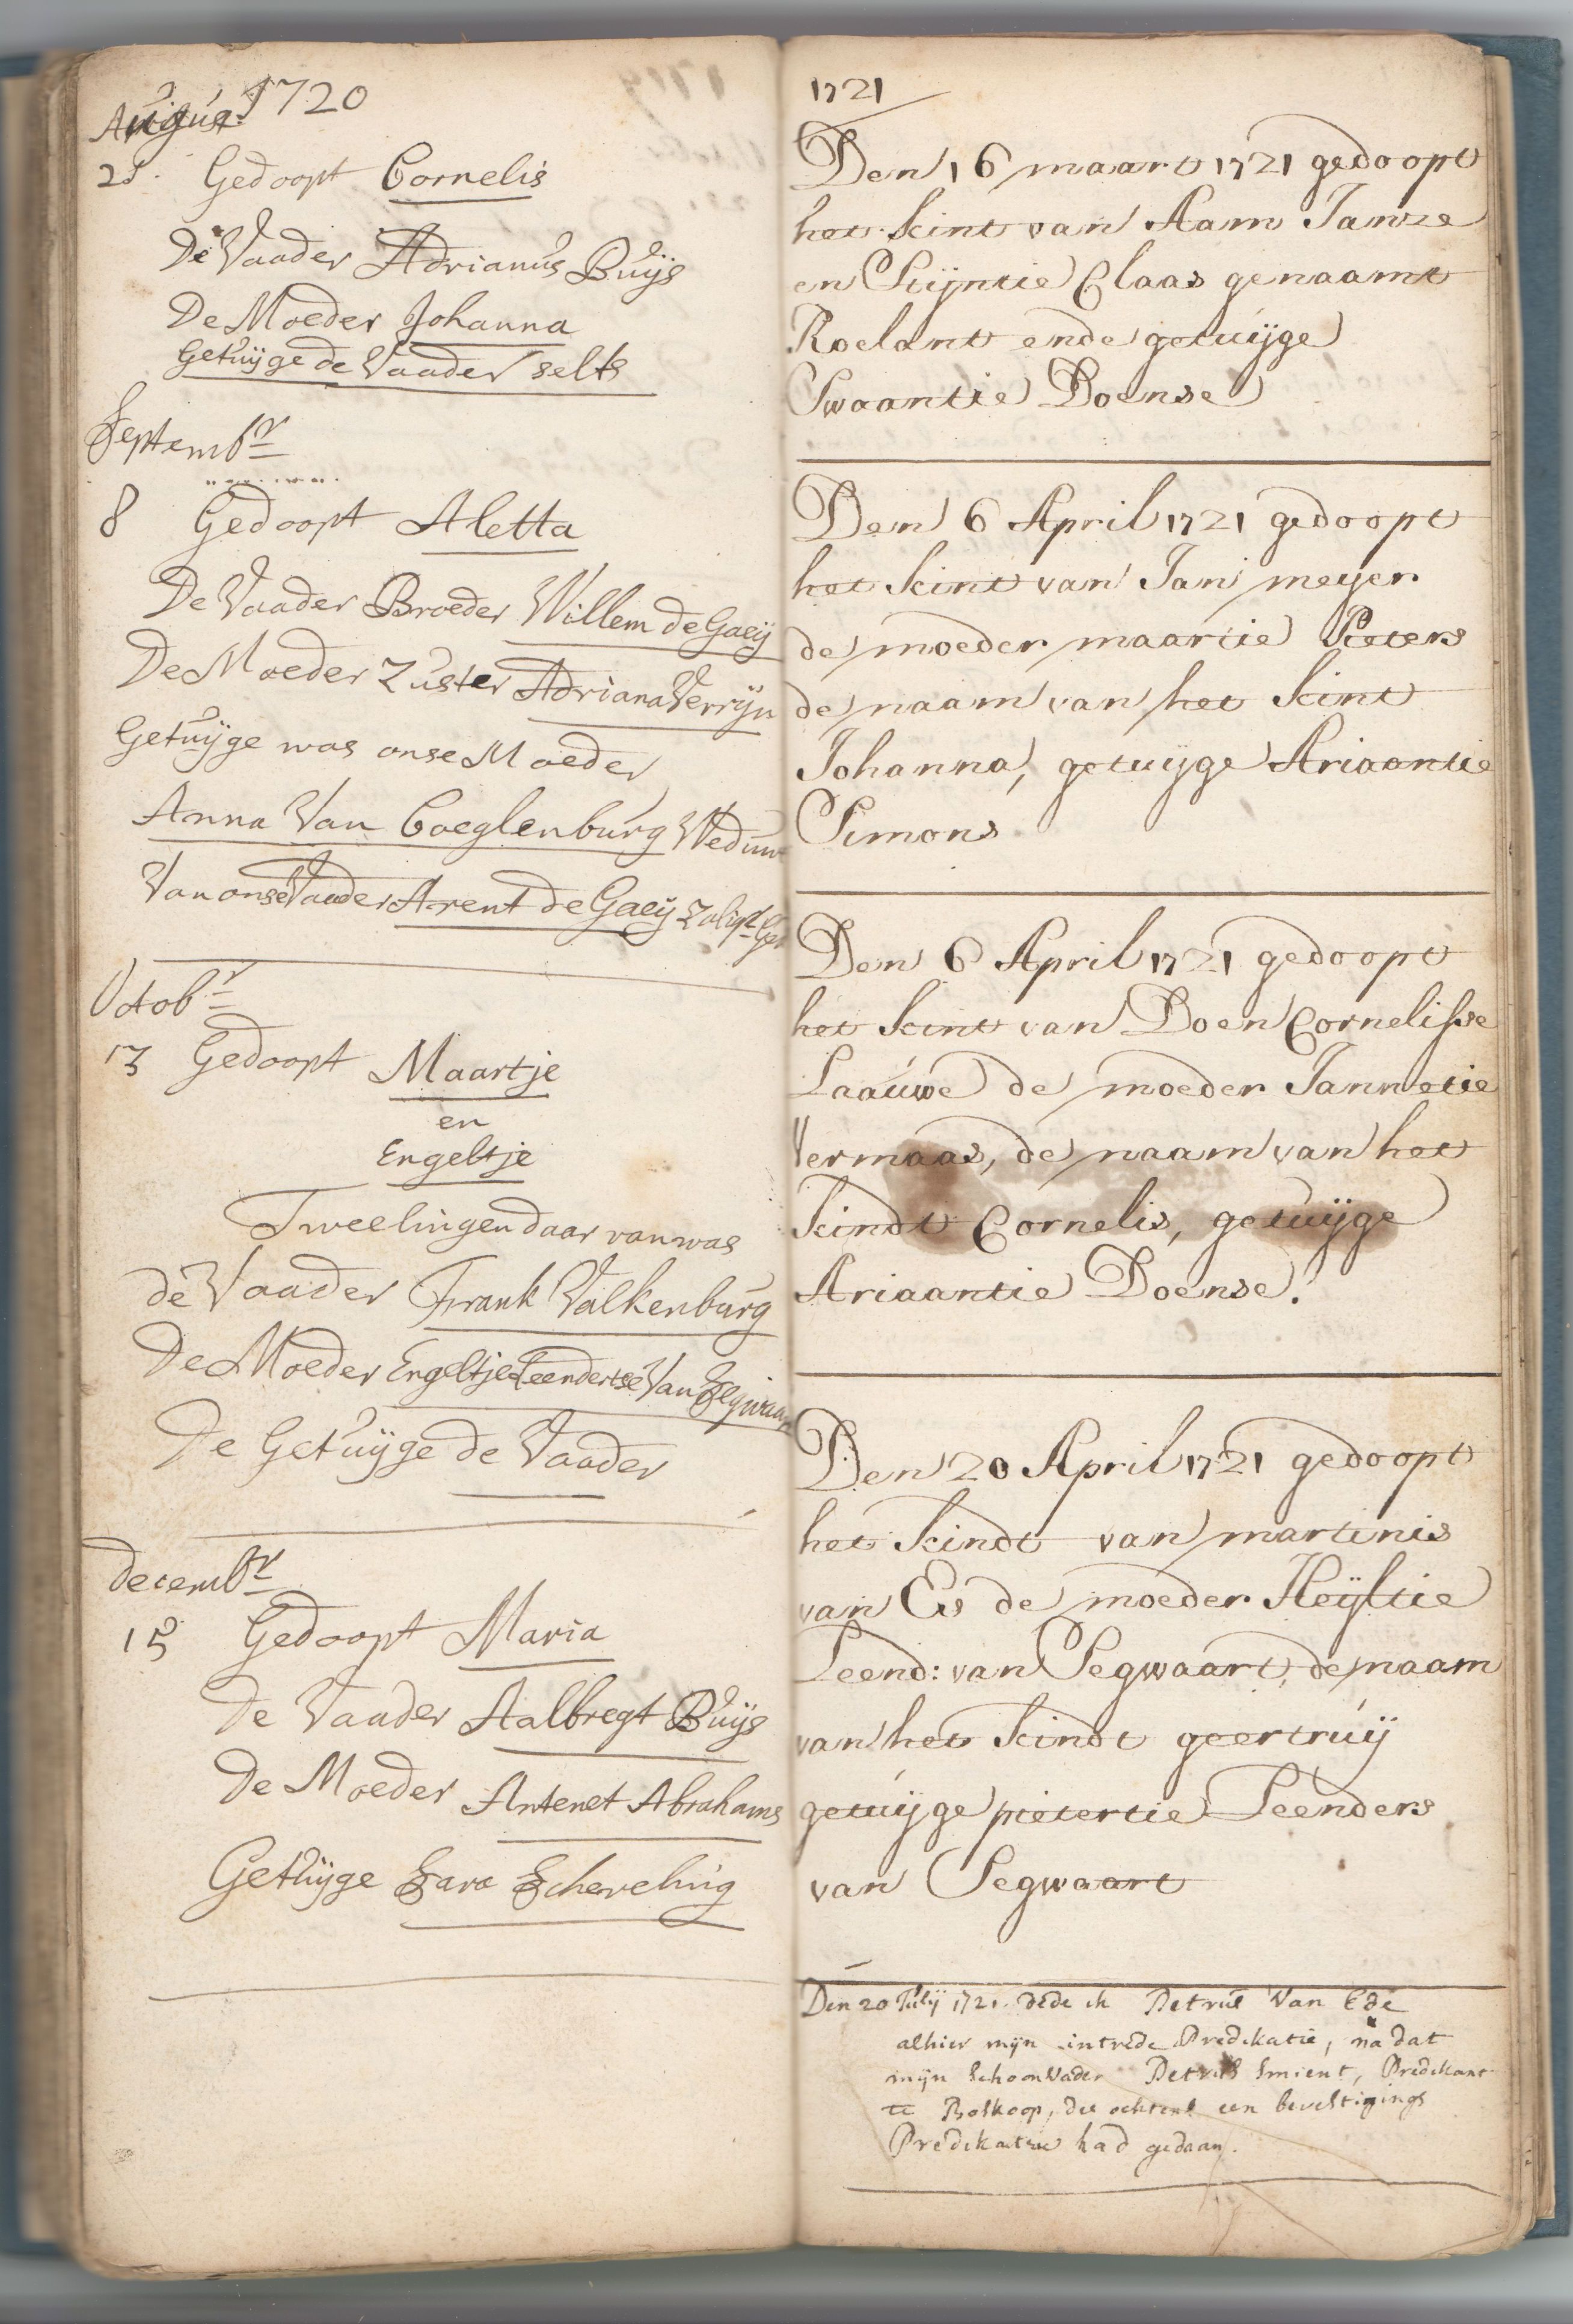 1720
August
25. Gedoopt Cornelis
De Vaader Adrianus Buijs
De Moeder Johanna
Getuijge de Vaader selfs
Septembr
8 Gedoopt Aletta
De Vaader Broeder Willem de Gaeij
De Moeder Zuster Adriana Verrijn
Getuijge was onse Moeder
Anna Van Coeglenburg Weduw
Van onse Vaader Arent de Gaeij Zaligr
Octobr
13 Gedoopt Maartje
en
Engeltje
Tweelingen daar van was
de Vaader Frank Valkenburg
De Moeder Engeltje Leenderse Van Segwaar
De Getuijge de Vaader
Decembr
15 Gedoopt Maria
De Vaader Aalbregt Buijs
De Moeder Antenet Abrahams
Getuijge Sara Scheveling
1721
Den 16 maart 1721 gedoopt
het kint van Aam Janse
en Stijntie Claas genaamt
Roelant ende getuijge
Swaantie Doense
Den 6 April 1721 gedoopt
het kint van Jan meyer
de moeder maartie Pieters
de naam van het kint
Johanna, getuijge Ariaantie
Simons
Den 6 April 1721 gedoopt
het kint van Doen Cornelisse
Laauwe de moeder Jannetie
Vermaas, de naam van het
kindt Cornelis, getuijge
Ariaantie Doense.
Den 20 April 1721 gedoopt
het kindt van martinis
van Es de moeder Heijltie
Leend: van Segwaart, de naam
van het kindt geertruij
getuijge pietertie Leenders
van Segwaart
Den 20 Julij 1721 dede ik Petrus Van Ede
alhier mijn intrede Predikatie, na dat
mijn Schoonvader Petrus Smient, Predikant
te Boskoop, die ochtent een bevestigings
Predikatie had gedaan.